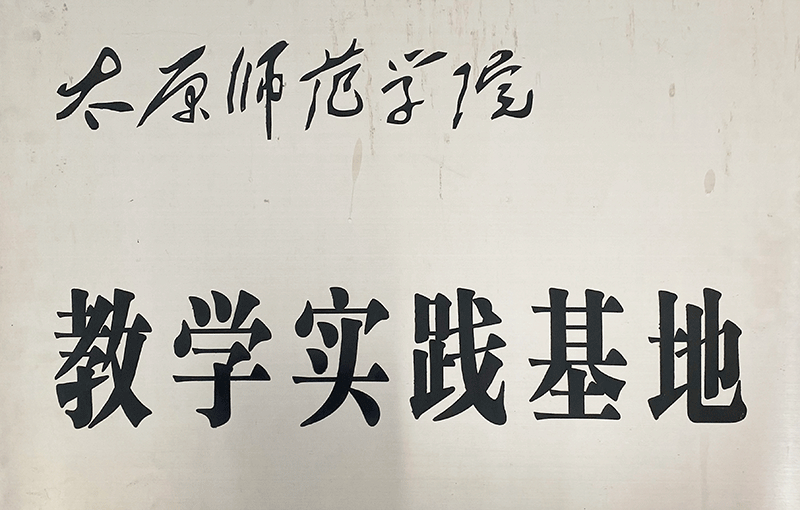 太原师范学院
教学实践基地